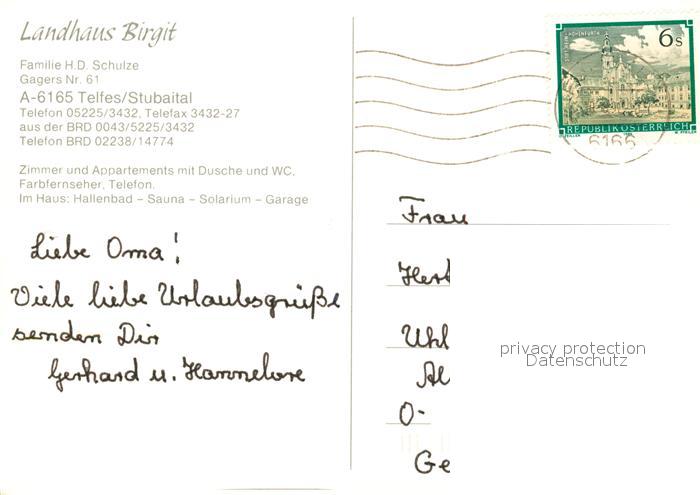 Landhaus Birgit
Familie H.D. Schulze
Gagers Nr. 61
A-6165 Telfes/Stubaital
Telefon 05225/3432, Telefax 3432-27
aus der BRD 0043/5225/3432
Telefon BRD 02238/14774
Zimmer und Appartements mit Dusche und WC,
Farbfernseher, Telefon.
Im Haus: Hallenbad – Sauna – Solarium – Garage
Liebe Oma!
Viele liebe Urlaubsgrüße
senden Dir
Gerhard u. Hannelore
6 s
REPUBLIK ÖSTERREICH
Frau
Uhl
O-
Ge
privacy protection
Datenschutz